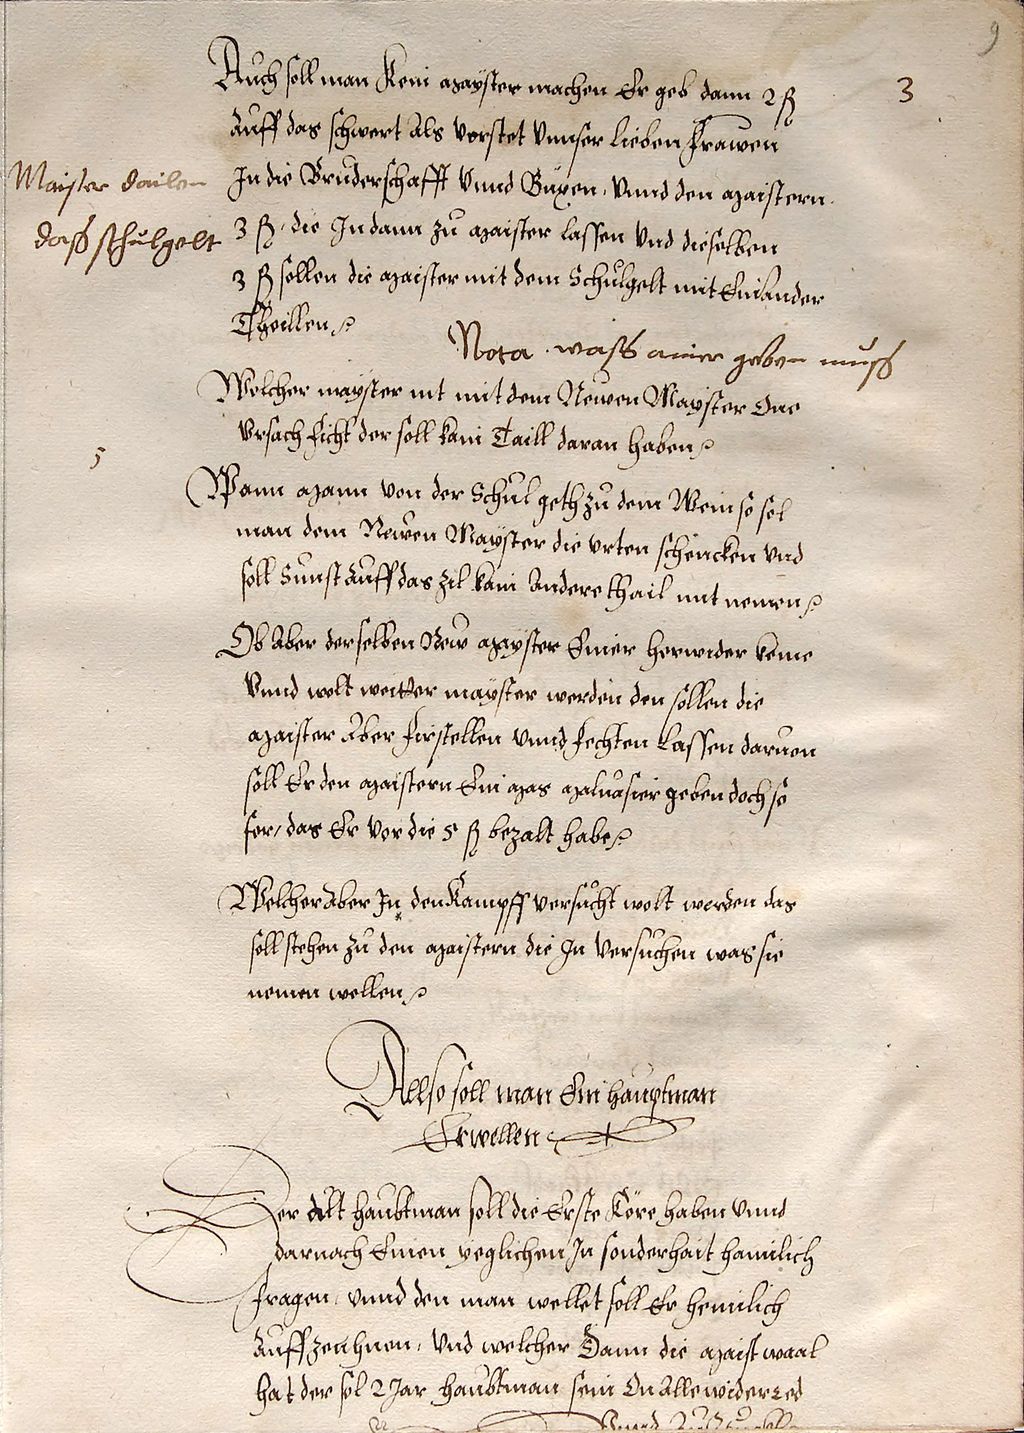 9
3
Auch soll man Kein Mayster machen Er geb dann 2 fl
Auff das schwert Als vorstet vnnser lieben frawen
Maister dailen
In die Bruderschafft vnnd Buxen, vnnd den Maistern
dass schulgelt
3 fl, die In dann zu Maister lassen vnd dieselben
3 fl sollen die Maister mit dem Schulgelt mit Einander
Theillen
Nota . wass ainer geben muss
Welcher mayster nit mit dem Newen Mayster One
vrsach ficht der soll kain Taill daran haben
5
Wann Mann von der Schul geth zu dem Wein so sol
man dem Newen Mayster die vrten schencken vnd
soll Sunst Auff das Zil kain Andere thail nit nemen
Ob Aber derselben New Mayster Einer herwider keme
vnnd wolt weitter mayster werden den sollen die
Maister Aber firstellen vnnd fechten Lassen daruon
soll Er den Maistern Ein Mas Maluasier geben doch so
fer, das Er vor die 5 fl bezalt habe
Welcher Aber In den Kampff versucht wolt werden das
soll stehen zu den Maistern die In versuchen was sie
nemen wellen
Allso soll man Ein hauptman
Erwellen
Der Alt haubtman soll die Erste Köre haben vnnd
darnach Einen yeglichen In sonderhait haimlich
fragen, vnnd den man wellet soll Er heimlich
Auff zeichnen, vnd welcher Dann die Maist waal
hat der sol 2 Jar haubtman sein On Alle widerred